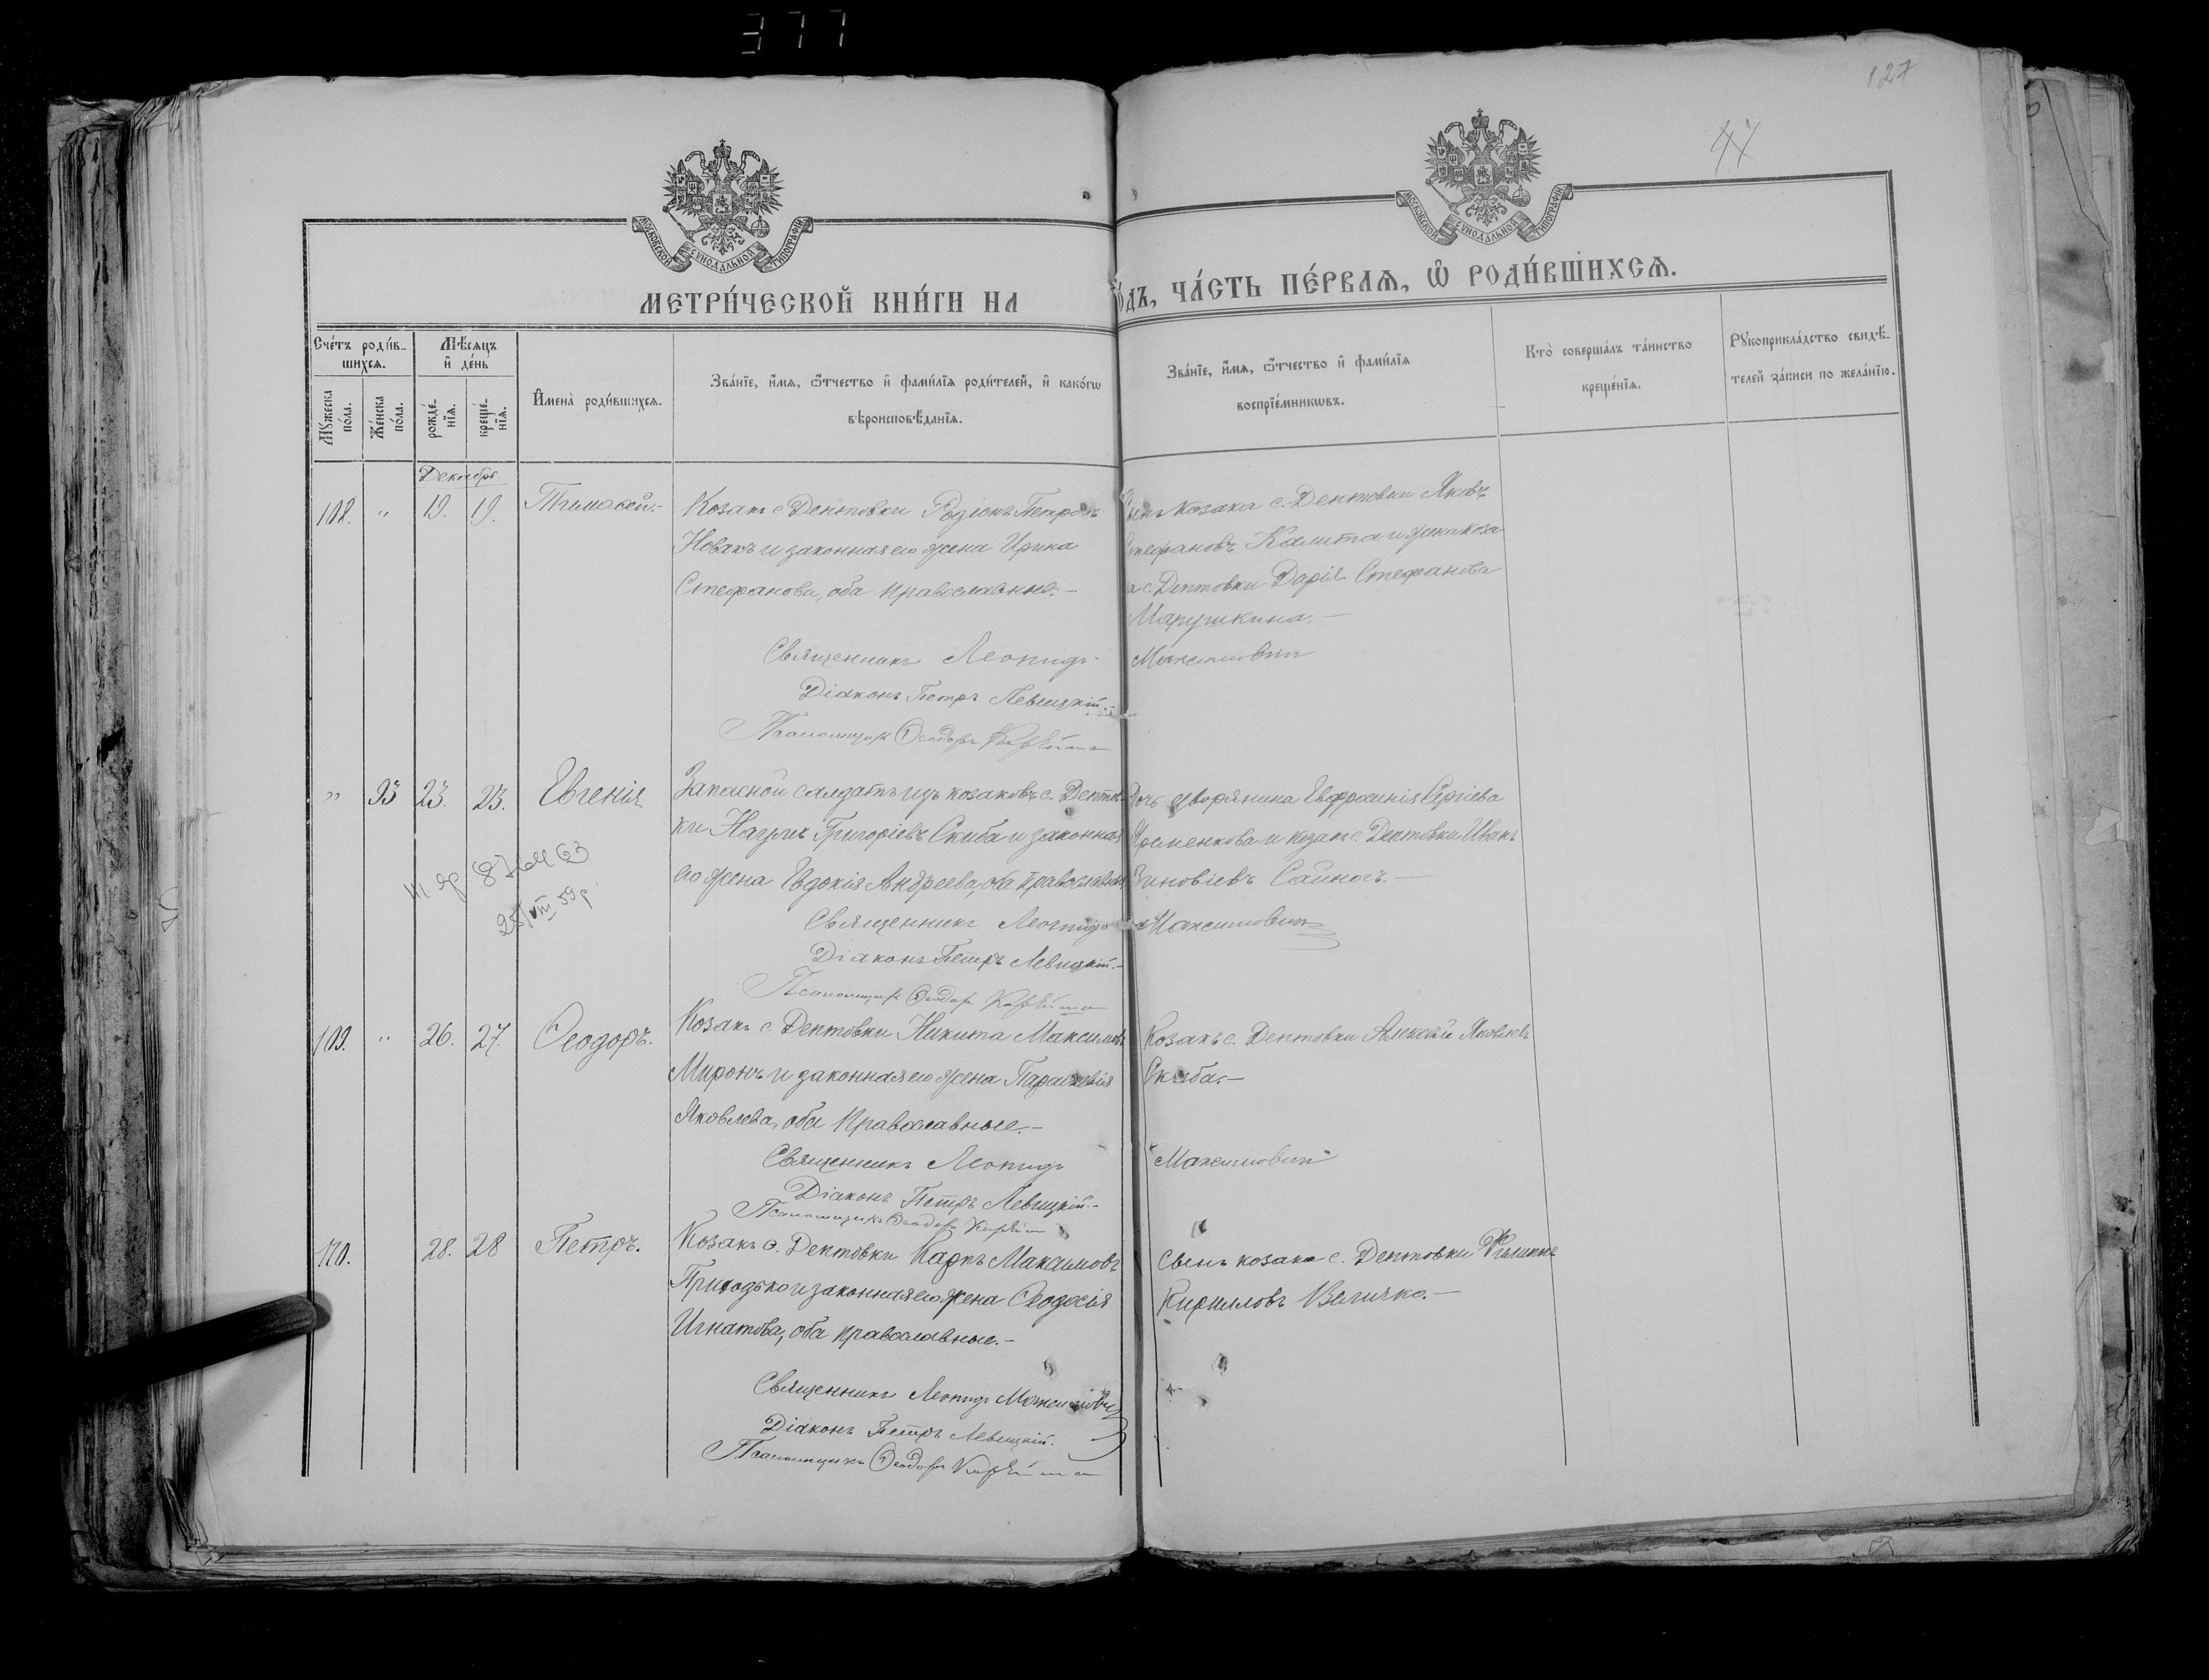 377
127
47
МОСКОВСКОЙ СУНОДАЛЬНОЙ ТИПОГРАФІИ
МОСКОВСКОЙ СУНОДАЛЬНОЙ ТИПОГРАФІИ
МЕТРИ́ЧЕСКОЙ КНИ́ГИ НА
ГО́ДЪ, ЧА́СТЬ ПЕ́РВАѦ, Ѽ РОДИ́ВШИХСѦ.
Сче́тъ роди́в-
шихсѧ.
Мѣ́сѧцъ
и҆ де́нь
Мꙋ́жеска
по́ла.
Же́нска
по́ла.
рожде́-
нїѧ.
креще́-
нїѧ.
И҆мена̀ роди́вшихсѧ.
Зва́нїе, и҆́мѧ, ѻ҆́тчество и҆ фами́лїѧ роди́телей, и҆ како́гѡ
вѣроисповѣ́данїѧ.
Зва́нїе, и҆́мѧ, ѻ҆́тчество и҆ фами́лїѧ
воспрїе́мникѡвъ.
Кто̀ соверша́лъ та́инство
креще́нїѧ.
Рꙋкоприкла́дство свидѣ́-
телей за́писи по жела́нїю.
Декабрь
108. " 19. 19. Тимофей.-
Козакъ с Дептовки Родіонъ Петровъ
Новакъ и законная его жена Ирина
Стефанова, оба православные.-
Сынъ козака с. Дептовки Яковъ
Стефановъ Калита и жена коза
ка с. Дептовки Дарія Стефанова
Марушкина.-
Священникъ Леонидъ Максимовичъ
Діаконъ Петръ Левицкій.-
Псаломщикъ Ѳеодоръ
" 93 23. 23. Евгенія
Запасной салдатъ изъ козаковъ с. Дептов
ки Наумъ Григоріевъ Скиба и законная
его жена Евдокія Андреева, оба православные
Дочь дворянина Евфросинія Сергіева
Яременкова и козакъ с. Дептовки Иванъ
Зиновіевъ Саиногъ.-
25/VIII 59 р
Священникъ Леонидъ Максимовичъ
Діаконъ Петръ Левицкій.-
Псаломщикъ Ѳеодоръ
109. " 26. 27. Ѳеодоръ.
Козакъ с. Дептовки Никита Максимовъ
Миронъ и законная его жена Параскевія
Яковлева, оба православные.-
Козакъ с. Дептовки Алексѣй Яковлевъ
Скиба.-
Священникъ Леонидъ Максимовичъ
Діаконъ Петръ Левицкій.-
Псаломщикъ Ѳеодоръ
110. 28. 28 Петръ.
Козакъ с. Дептовки Карпъ Максимовъ
Приходько и законная его жена Ѳеодосія
Игнатова, оба православные.-
Сынъ козака с. Дептовки Филиппъ
Кирилловъ Величко.-
Священникъ Леонидъ Максимовичъ
Діаконъ Петръ Левицкій.
Псаломщикъ Ѳеодоръ